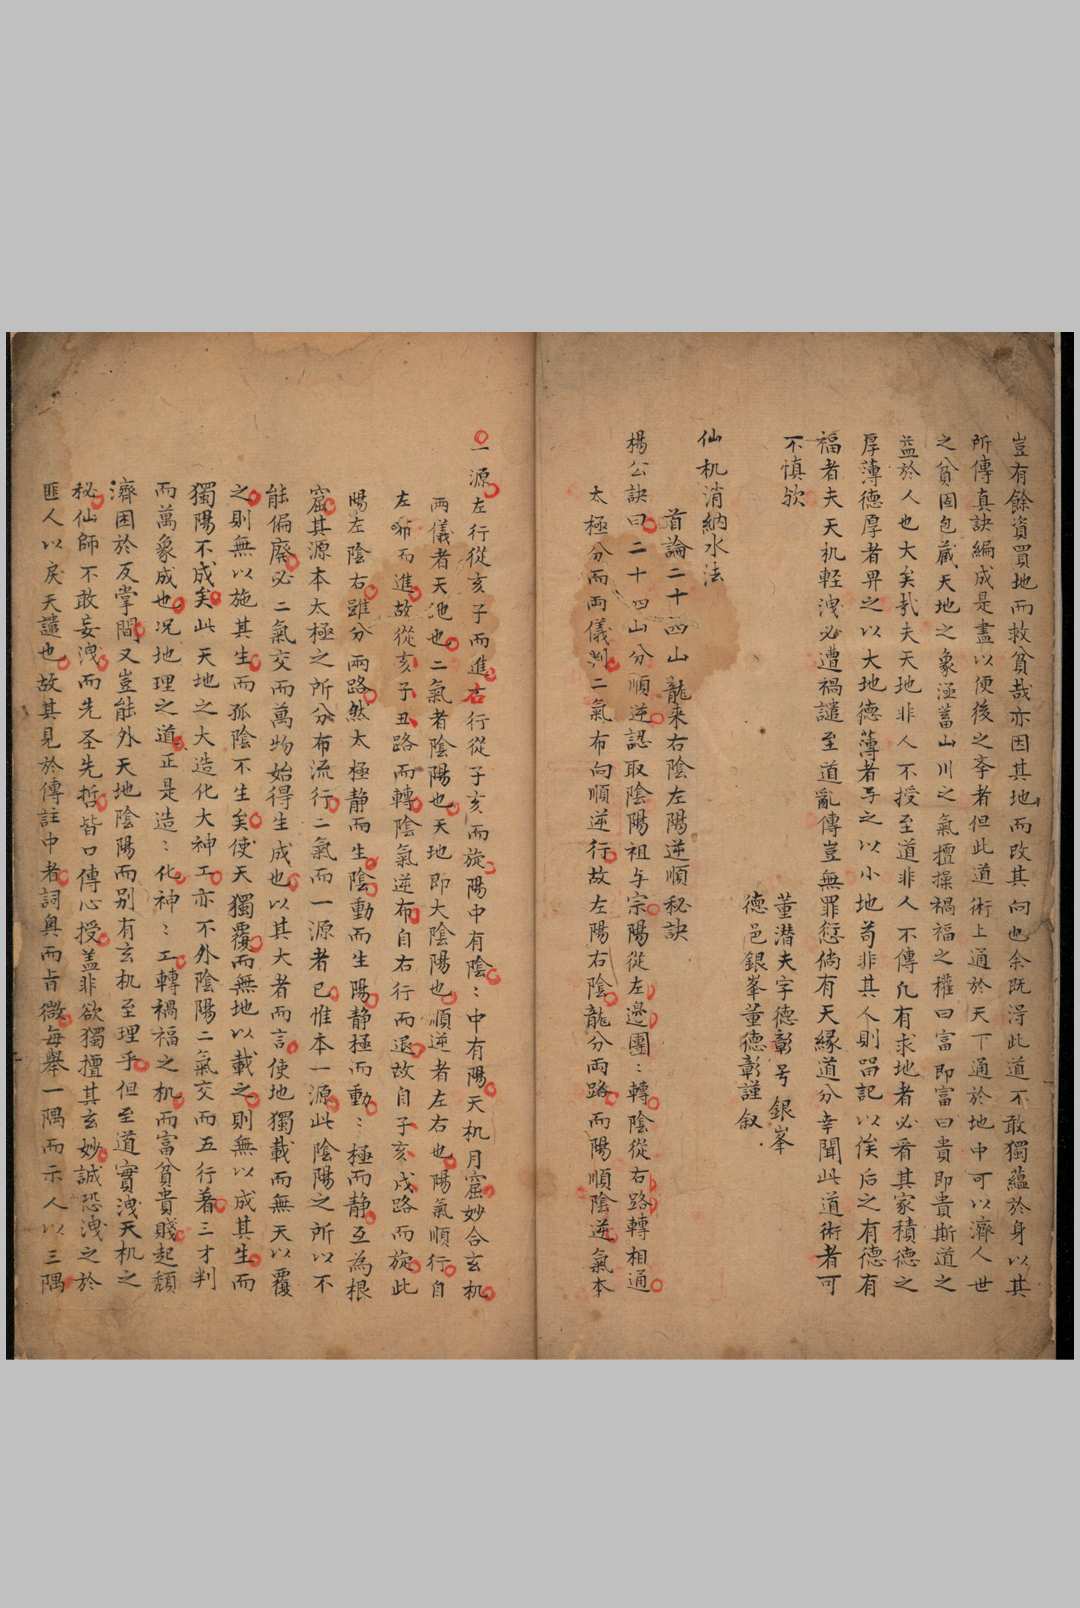 豈有餘資買地而救貧哉亦因其地而改其向也余既淂此道不敢獨蘊於身以其
所傳真訣編成是書以便後之孝者但此道術上通於天下通於地中可以濟人世
之貧困包藏天地之象涵蓄山川之氣擅操禍福之權曰富即富曰貴即貴斯道之
益於人也大矣㢤夫天地非人不授至道非人不傳凢有求地者必看其家積德之
厚薄德厚者畀之以大地德薄者与之以小地苟非其人則畄記以俟后之有德有
福者夫天机軽洩必遭禍譴至道亂傳豈無罪愆倘有天緣道分幸聞此道術者可
不慎欤
董潛夫字德彰号銀峯
德邑銀峯董德彰謹叙.
仙机消納水法
首論二十四山龍来右陰左陽逆順秘訣
楊公訣曰二十四山分順逆認取陰陽祖与宗陽從左邊團：轉陰從右路轉相通
太極分而兩儀判二氣布向順逆行故左陽右陰龍分両路而陽順陰逆氣本
一源左行從亥子而進右行從子亥而旋陽中有陰：中有陽天机月窟妙合玄机
両儀者天地也二氣者陰陽也天地即大陰陽也順逆者左右也陽氣順行自
左布而進故從亥子丑路而轉陰氣逆布自右行而退故自子亥戌路而旋此
陽左陰右雖分兩路然太極静而生陰動而生陽静極而動：極而静互為根
窟其源本太極之所分布流行二氣而一源者已惟本一源此陰陽之所以不
能偏廢必二氣交而萬物始得生成也以其大者而言使地獨載而無天以覆
之則無以施其生而孤陰不生矣使天獨覆而無地以載之則無以成其生而
獨陽不成矣此天地之大造化大神工亦不外陰陽二氣交而五行着三才判
而萬象成也况地理之道正是造：化神：工轉禍福之机而富貧貴賤起頽
濟困於反掌間又豈能外天地陰陽而别有玄机至理乎但至道實洩天机之
秘仙師不敢妄洩而先圣先哲皆口傳心授盖非欲獨擅其玄妙誠恐洩之於
匪人以戾天譴也故其見於傳註中者詞奥而旨微每舉一隅而示人以三隅